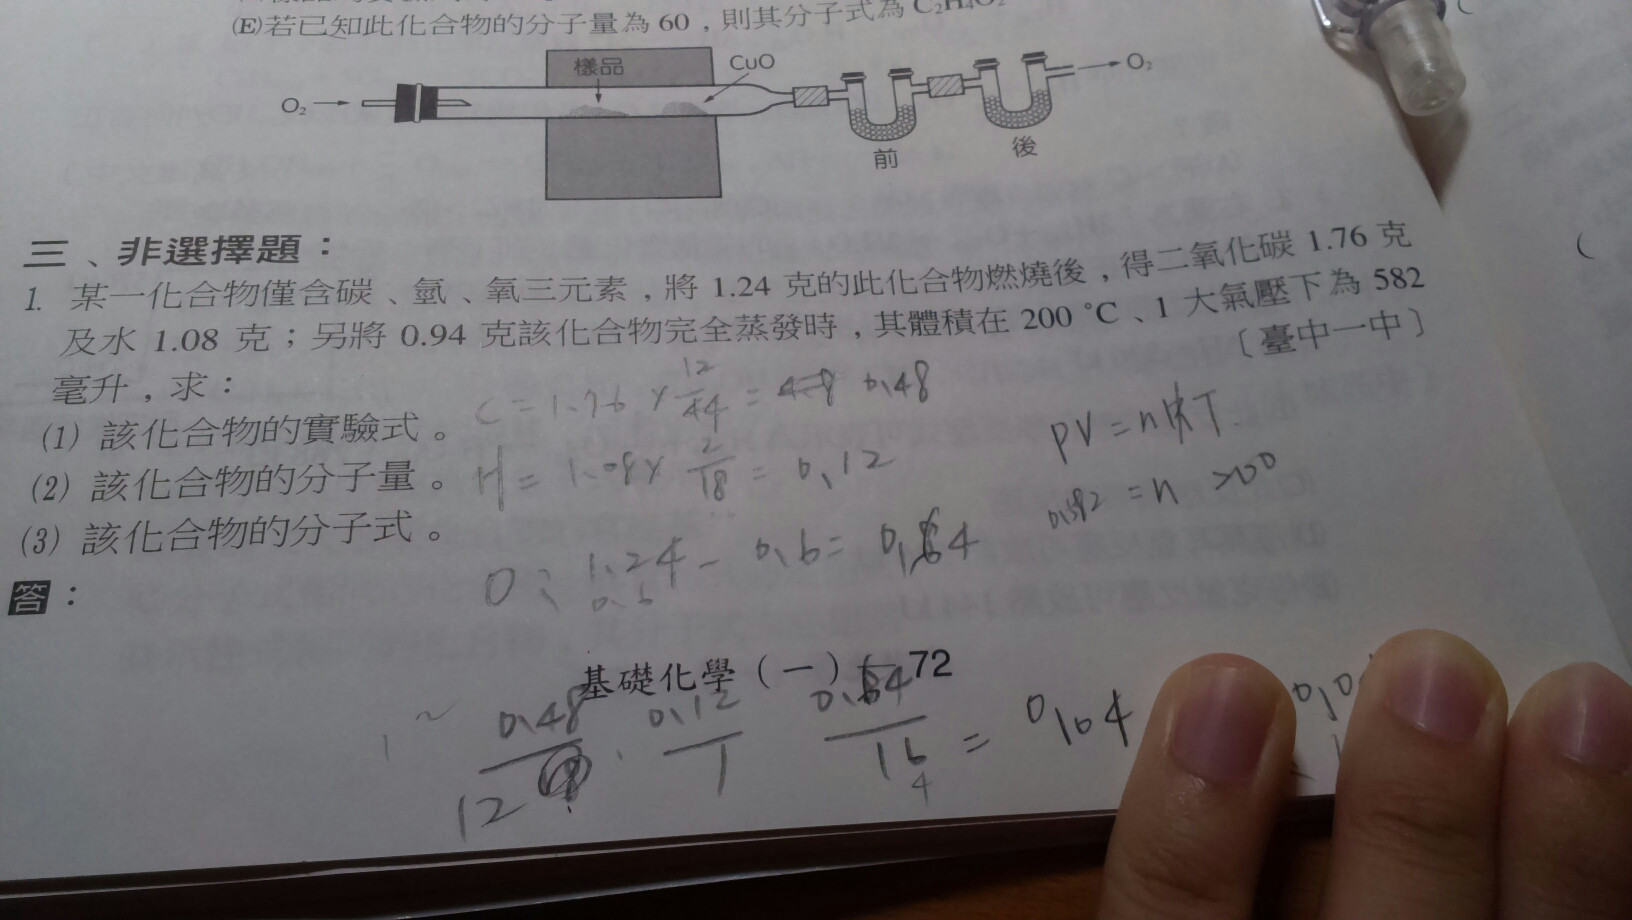 (E)若已知此化合物的分子量為 60，則其分子式為 C₂H₄O₂
樣品
CuO
O₂
O₂
前
後
三、非選擇題：
1. 某一化合物僅含碳、氫、氧三元素，將 1.24 克的此化合物燃燒後，得二氧化碳 1.76 克
及水 1.08 克；另將 0.94 克該化合物完全蒸發時，其體積在 200 °C、1 大氣壓下為 582
毫升，求：
〔臺中一中〕
(1) 該化合物的實驗式。
(2) 該化合物的分子量。
(3) 該化合物的分子式。
答：
C = 1.76 × 12/44 = 0.48
H = 1.08 × 2/18 = 0.12
O : 1.24 - 0.6 = 0.64
0.6
PV = nRT
0.582 = n
基礎化學（一）72
0.48/12 0.12/1 0.64/16 = 0.04
4